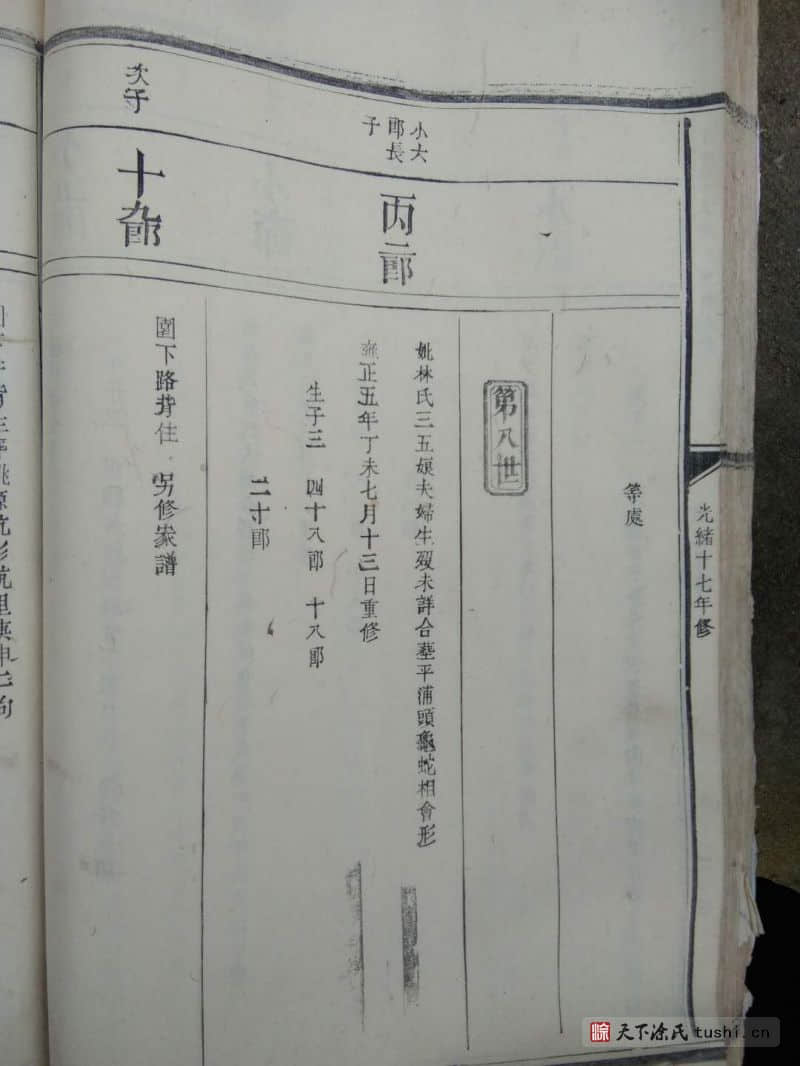 光緒十七年修
等處
第八世
小大
郎長
子
丙二郎
妣林氏三五娘夫婦生歿未詳合墓平浦頭龜蛇相會形
雍正五年丁未七月十三日重修
生子三 四十八郎 十八郎
二十郎
次子
十九郎
園下路背住 另修家譜
天下涂氏 tushi.cn